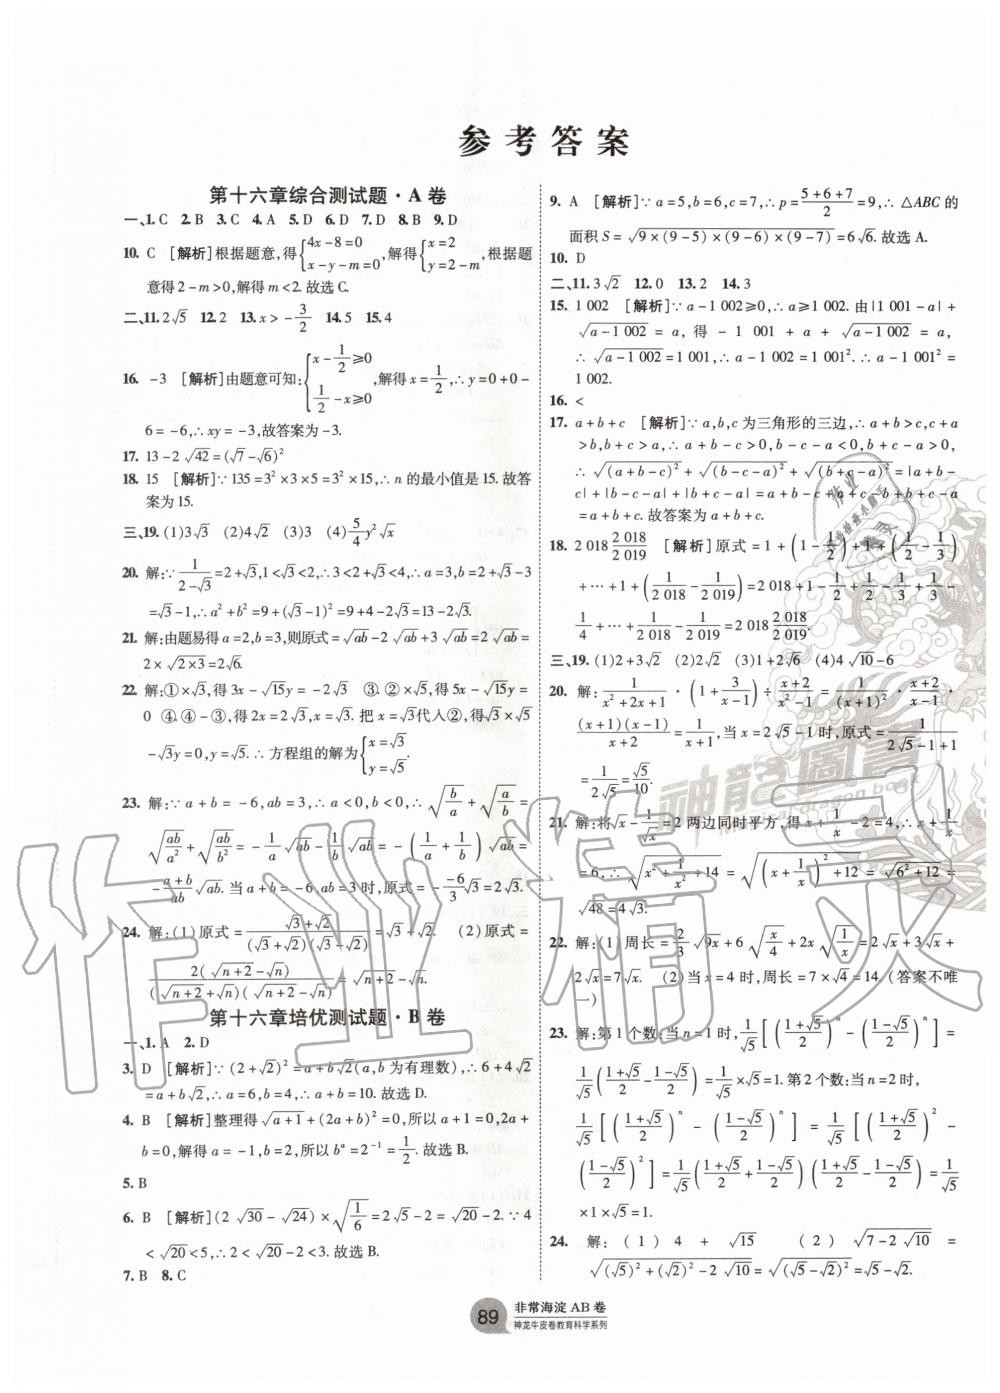 参考答案
第十六章综合测试题·A卷
一、1. C 2. B 3. C 4. A 5. D 6. D 7. D 8. B 9. D
10. C [解析]根据题意,得{4x-8=0 x-y-m=0,解得{x=2 y=2-m,根据题
意得2-m>0,解得m<2.故选C.
二、11. 2√5 12. 2 13. x>-3/2 14. 5 15. 4
16. -3 [解析]由题意可知:{x-1/2≥0 1/2-x≥0,解得x=1/2,∴y=0+0-
6=-6,∴xy=-3,故答案为-3.
17. 13-2√42=(√7-√6)²
18. 15 [解析]∵135=3²×3×5=3²×15,∴n的最小值是15.故答
案为15.
三、19. (1)3√3 (2)4√2 (3)3 (4)5/4y²√x
20. 解:∵1/(2-√3)=2+√3,1<√3<2,∴3<2+√3<4,∴a=3,b=2+√3-3
=√3-1,∴a²+b²=9+(√3-1)²=9+4-2√3=13-2√3.
21. 解:由题易得a=2,b=3,则原式=√ab-2√ab+3√ab=2√ab=
2×√(2×3)=2√6.
22. 解:①×√3,得3x-√15y=-2√3 ③.②×√5,得5x-√15y=
0 ④.④-③,得2x=2√3,x=√3.把x=√3代入②,得√3×√5
-√3y=0,y=√5.∴方程组的解为{x=√3 y=√5.
23. 解:∵a+b=-6,ab=3,∴a<0,b<0,∴√(b/a)+√(a/b)=
√(ab/a²)+√(ab/b²)=-1/a√ab-1/b√ab=-(1/a+1/b)√ab=
-(a+b)/ab√ab.当a+b=-6,ab=3时,原式=-(-6/3)√3=2√3.
24. 解:(1)原式=(√3+√2)/((√3+√2)(√3-√2))=√3+√2. (2)原式=
2(√(n+2)-√n)/((√(n+2)+√n)(√(n+2)-√n))=√(n+2)-√n.
第十六章培优测试题·B卷
一、1. A 2. D
3. D [解析]∵(2+√2)²=a+b√2(a,b为有理数),∴6+4√2
=a+b√2,∴a=6,b=4,∴a+b=10.故选D.
4. B [解析]整理得√(a+1)+(2a+b)²=0,所以a+1=0,2a+
b=0,解得a=-1,b=2,所以bᵃ=2⁻¹=1/2.故选B.
5. B
6. B [解析](2√30-√24)×√(1/6)=2√5-2=√20-2.∵4
<√20<5,∴2<√20-2<3.故选B.
7. B 8. C
9. A [解析]∵a=5,b=6,c=7,∴p=(5+6+7)/2=9,∴△ABC的
面积S=√(9×(9-5)×(9-6)×(9-7))=6√6.故选A.
10. D
二、11. 3√2 12. 0 13. 2 14. 3
15. 1 002 [解析]∵a-1 002≥0,∴a≥1 002.由|1 001-a|+
√(a-1 002)=a,得-1 001+a+√(a-1 002)=a,
∴√(a-1 002)=1 001,∴a-1 002=1 001².∴a-1 001²=
1 002.
16. <
17. a+b+c [解析]∵a,b,c为三角形的三边,∴a+b>c,c+a
>b,b+c>a,∴a+b-c>0,b-c-a<0,b+c-a>0,
∴√(a+b-c)²+√(b-c-a)²+√(b+c-a)²=|a+b-
c|+|b-c-a|+|b+c-a|=a+b-c+a+c-b+b+c-a
=a+b+c.故答案为a+b+c.
18. 2 018 2 018/2 019 [解析]原式=1+(1-1/2)+1+(1/2-1/3)
+…+1+(1/2 018-1/2 019)=2 018+1-1/2+1/2-1/3+1/3-
1/4+…+1/2 018-1/2 019=2 018 2 018/2 019.
三、19. (1)2+3√2 (2)4√2 (3)1+2√6 (4)4√10-6
20. 解:1/(x²+2x+1)·(1+3/(x-1))÷(x+2)/(x²-1)=1/(x+1)²·(x+2)/(x-1)·
(x+1)(x-1)/(x+2)=1/(x+1),当x=2√5-1时,原式=1/(2√5-1+1)
=1/(2√5)=√5/10.
21. 解:将√x-1/√x=2两边同时平方,得x+1/x-2=4,∴x+1/x
=6,∴√(x²+1/x²+14)=√((x+1/x)²+12)=√(6²+12)=
√48=4√3.
22. 解:(1)周长=2/3√9x+6√(x/4)+2x√(1/x)=2√x+3√x+
2√x=7√x. (2)当x=4时,周长=7×√4=14.(答案不唯
一)
23. 解:第1个数:当n=1时,1/√5[((1+√5)/2)ⁿ-((1-√5)/2)ⁿ]=
1/√5((1+√5)/2-(1-√5)/2)=1/√5×√5=1.第2个数:当n=2时,
1/√5[((1+√5)/2)ⁿ-((1-√5)/2)ⁿ]=1/√5[((1+√5)/2)²-
((1-√5)/2)²]=1/√5((1+√5)/2+(1-√5)/2)((1+√5)/2-(1-√5)/2)=1/√5
×1×√5=1.
24. 解:(1)4+√15 (2)√(7-2√10)=
√((√5)²+(√2)²-2√10)=√(√5-√2)²=√5-√2.
89
非常海淀AB卷
神龙牛皮卷教育科学系列
作业精灵
神龍圖書